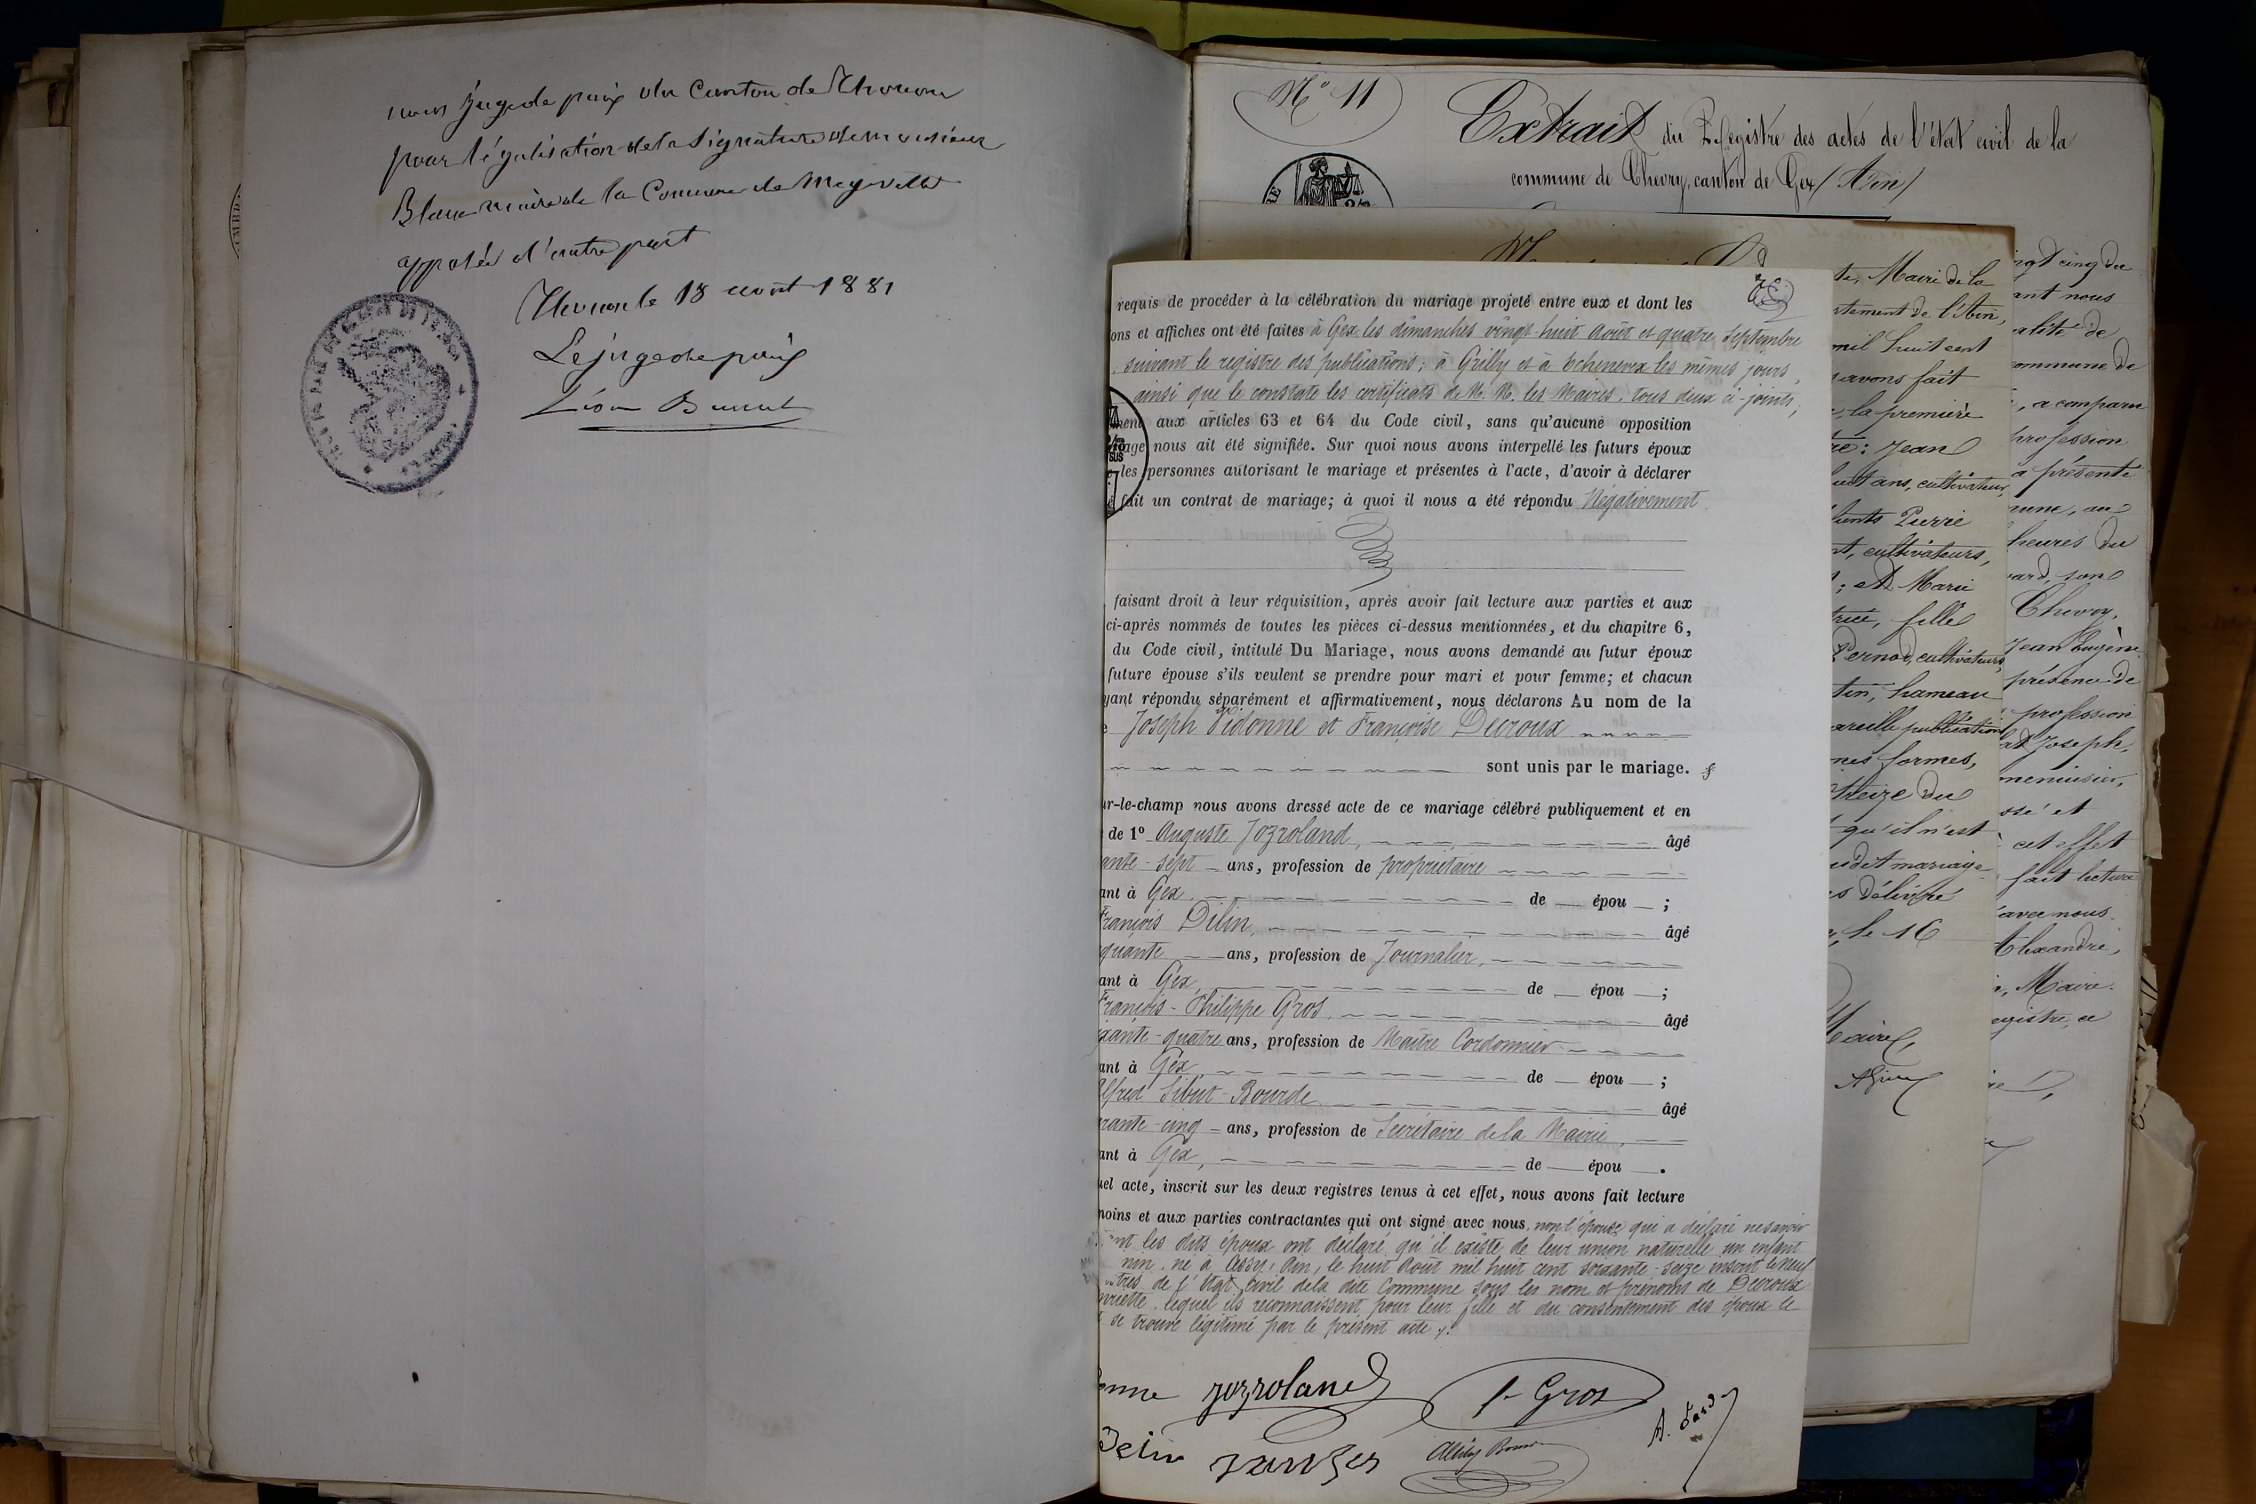 nous Juge de paix du Canton de Thonon
pour légalisation de la signature de monsieur
Blanc maire de la Commune de
apposée d'autre part
Thonon le 18 août 1881
Le juge de paix
Léon
N° 11
Extrait du Registre des actes de l'état civil de la
commune de Chevry, canton de Gex (Ain)
requis de procéder à la célébration du mariage projeté entre eux et dont les
ons et affiches ont été faites à Gex les dimanches vingt-huit Août et quatre Septembre
suivant le registre des publications; à Grilly et à Echenevex les mêmes jours,
ainsi que le constate les certificats de M. M. les Maires, tous deux ci-joints,
ment aux articles 63 et 64 du Code civil, sans qu'aucune opposition
iage nous ait été signifiée. Sur quoi nous avons interpellé les futurs époux
les personnes autorisant le mariage et présentes à l'acte, d'avoir à déclarer
fait un contrat de mariage; à quoi il nous a été répondu Négativement
faisant droit à leur réquisition, après avoir fait lecture aux parties et aux
ci-après nommés de toutes les pièces ci-dessus mentionnées, et du chapitre 6,
du Code civil, intitulé Du Mariage, nous avons demandé au futur époux
future épouse s'ils veulent se prendre pour mari et pour femme; et chacun
yant répondu séparément et affirmativement, nous déclarons Au nom de la
Joseph Vidonne et Françoise Decroux
sont unis par le mariage.
ur-le-champ nous avons dressé acte de ce mariage célébré publiquement et en
de 1° Auguste Jozroland, âgé
ante-sept ans, profession de propriétaire
ant à Gex, de épou ;
François Dilin, âgé
quante ans, profession de Journalier,
ant à Gex, de épou ;
François-Philippe Gros, âgé
xante-quatre ans, profession de Maître Cordonnier
ant à Gex, de épou ;
Alfred Sibut-Bourde, âgé
rante-cinq ans, profession de Secrétaire de la Mairie,
ant à Gex, de épou .
uel acte, inscrit sur les deux registres tenus à cet effet, nous avons fait lecture
moins et aux parties contractantes qui ont signé avec nous, non l'épouse qui a déclaré ne savoir
ant les dits époux ont déclaré qu'il existe de leur union naturelle un enfant
nin, né à Cessy, Ain, le huit Août mil huit cent soixante-seize inscrit le neuf
stres de l'Etat Civil de la dite Commune sous les nom et prénoms de Decroux
nriette, lequel ils reconnaissent pour leur fille et du consentement des époux le
se trouve légitimé par le présent acte.
onne Jozroland P. Gros
te, Maire de la
rtement de l'Ain,
mil huit cent
avons fait
la première
tre: Jean
huit ans, cultivateur,
Pierre
nt, cultivateurs,
; et Marie
trice, fille
Pernod, cultivateurs,
tin, hameau
areille publication
mes formes,
treize du
qu'il n'est
sudit mariage
es délivré
le 16
Maire,
ngt cinq du
ant nous
alité de
commune de
, a comparu
profession
a présenté
mune, au
heures du
ard, son
Chevry,
Jean Eugène
présence de
profession
at Joseph,
menuisier,
ssé et
cet effet
fait lecture
avec nous.
Alexandre,
, Maire.
egistre, ce